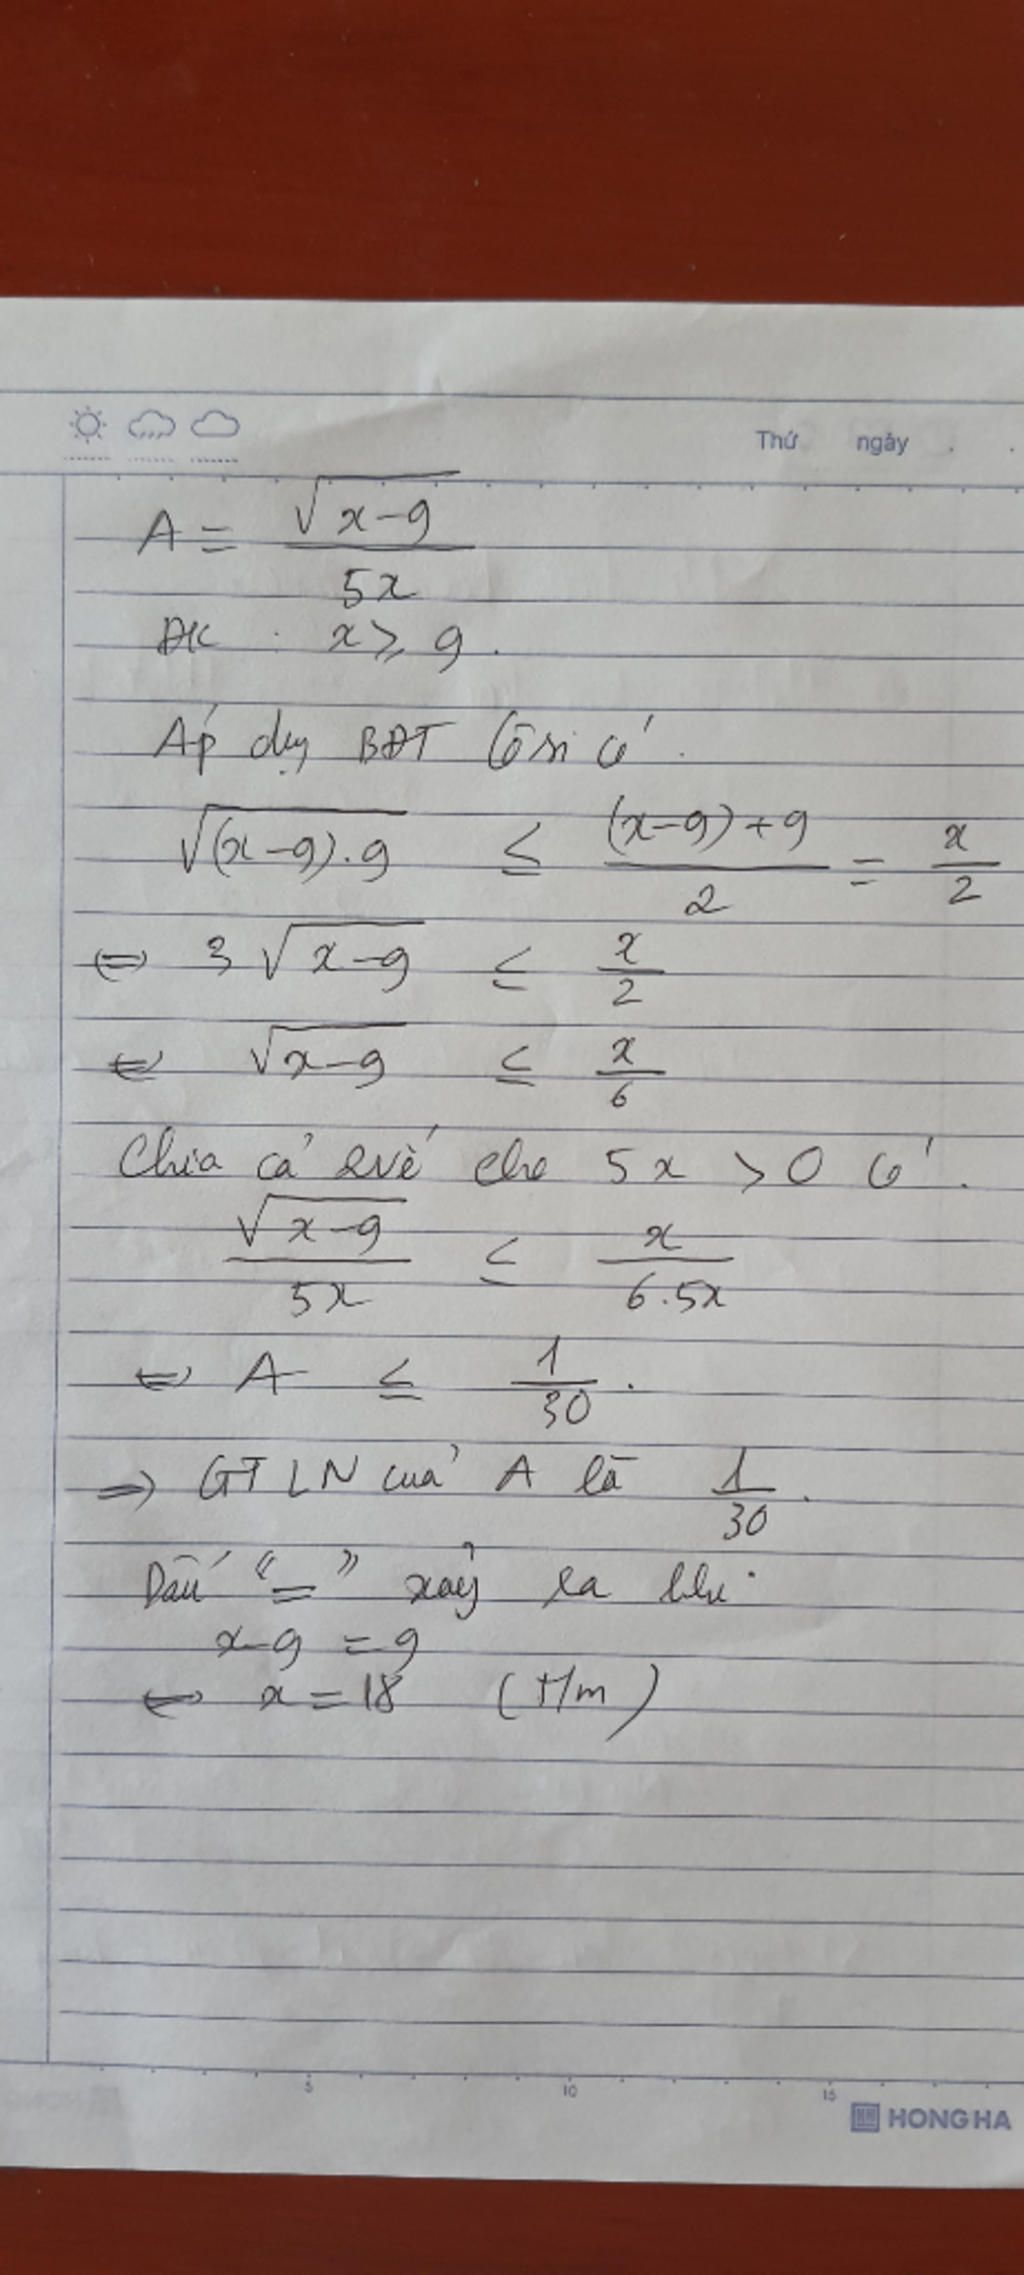 Thứ ngày
A = √(x-9) / 5x
ĐK : x ≥ 9.
Áp dụng BĐT Côsi có
√((x-9).9) ≤ ((x-9)+9)/2 = x/2
⇔ 3√(x-9) ≤ x/2
⇔ √(x-9) ≤ x/6
Chia cả 2 vế cho 5x > 0 có.
√(x-9) / 5x ≤ x / 6.5x
⇔ A ≤ 1/30.
⇒ GTLN của A là 1/30.
Dấu "=" xảy ra khi
x-9 = 9
⇔ x = 18 (t/m)
5 10 15
HONG HA